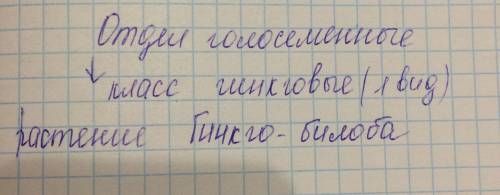 Отдел голосеменные
↓ класс гинкговые (1 вид)
растение Гинкго-билоба